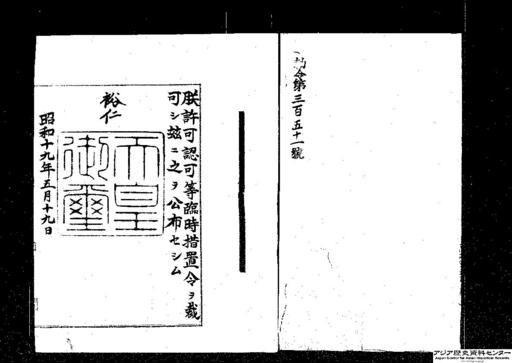 勅令第三百五十一號
朕許可認可等臨時措置令ヲ裁
可シ玆ニ之ヲ公布セシム
裕仁
天皇
御璽
昭和十九年五月十九日
アジア歴史資料センター
Japan Center for Asian Historical Records